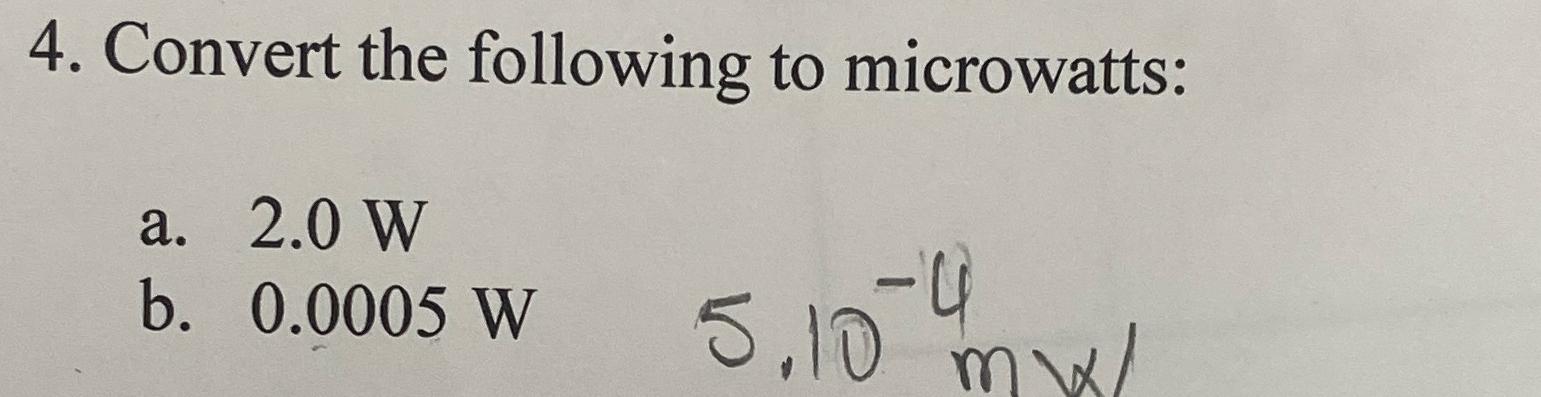 4. Convert the following to microwatts:
a. 2.0 W
b. 0.0005 W
5.10⁻⁴ mW